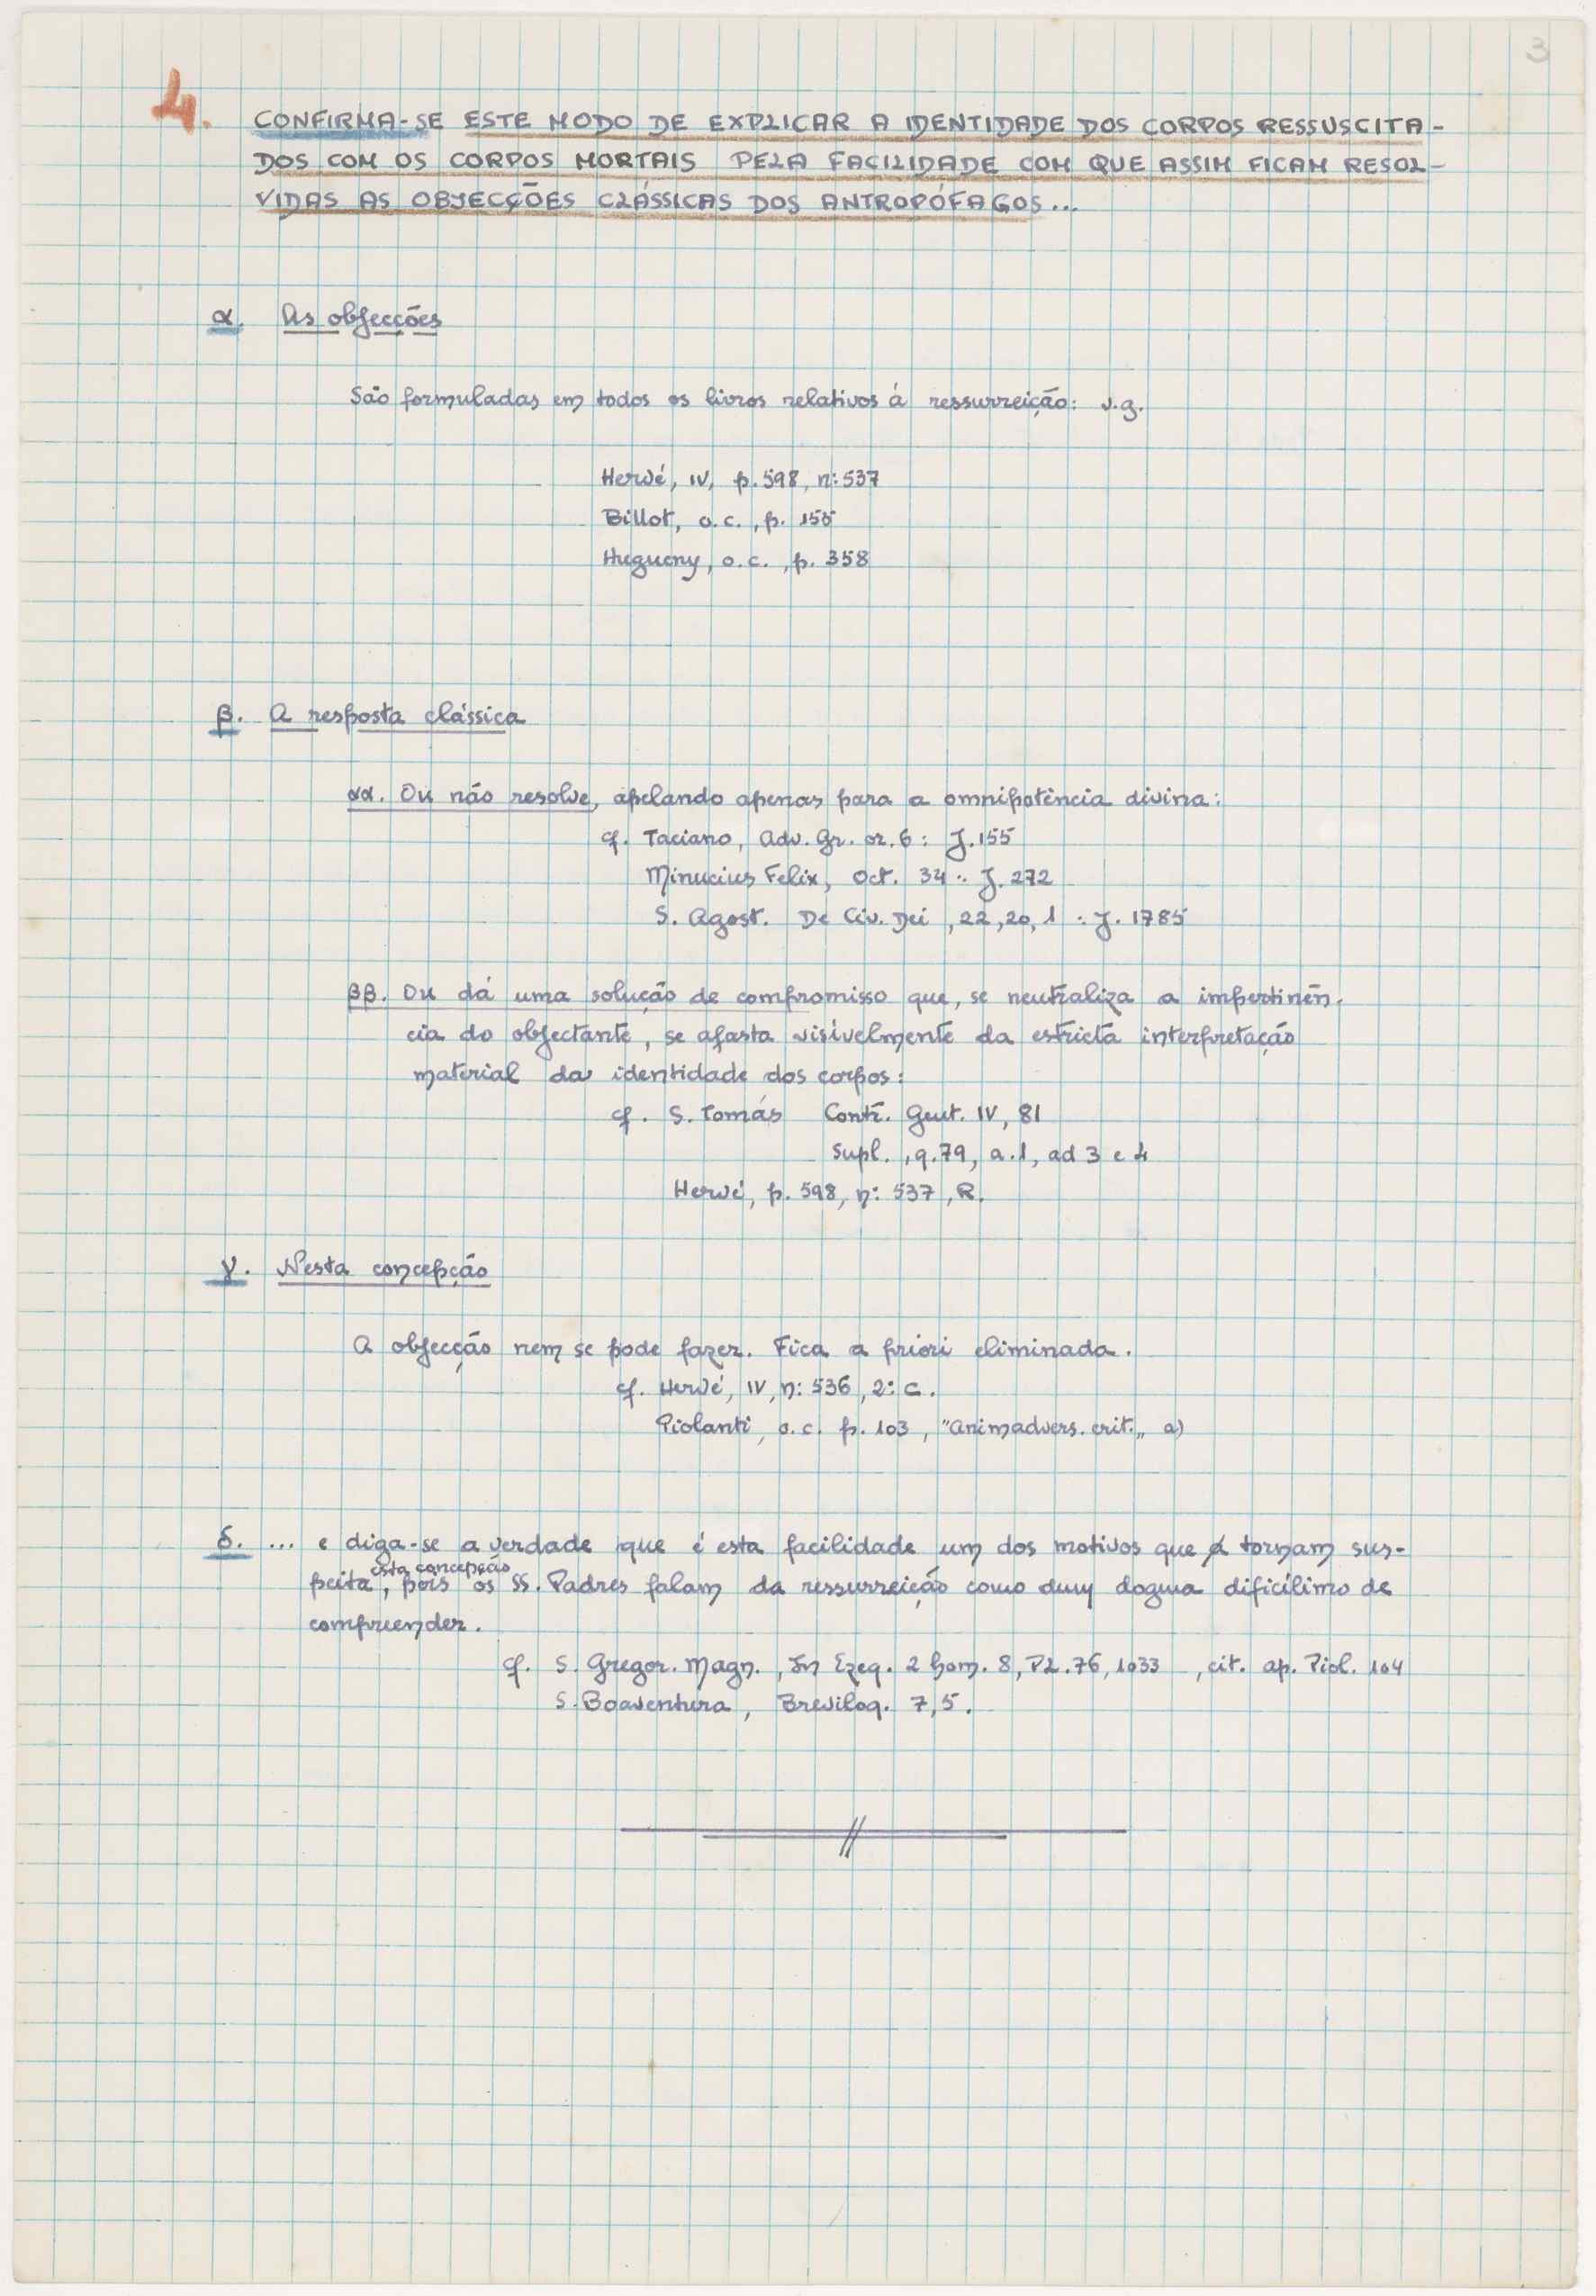 3
4. CONFIRMA-SE ESTE MODO DE EXPLICAR A IDENTIDADE DOS CORPOS RESSUSCITA-
DOS COM OS CORPOS MORTAIS PELA FACILIDADE COM QUE ASSIM FICAM RESOL-
VIDAS AS OBJECÇÕES CLÁSSICAS DOS ANTROPÓFAGOS...
α. As objecções
São formuladas em todos os livros relativos á ressurreição: v.g.
Hervé, IV, p. 598, n: 537
Billot, o.c., p. 155
Hugueny, o.c., p. 358
β. A resposta clássica
αα. Ou não resolve, apelando apenas para a omnipotência divina:
cf. Taciano, Adv. Gr. or. 6: J. 155
Minucius Felix, Oct. 34: J. 272
S. Agost. De Civ. Dei, 22, 20, 1: J. 1785
ββ. Ou dá uma solução de compromisso que, se neutraliza a impertinên-
cia do objectante, se afasta visívelmente da estricta interpretação
material da identidade dos corpos:
cf. S. Tomás Contr. Gent. IV, 81
Supl., q. 79, a. 1, ad 3 e 4
Hervé, p. 598, n: 537, R.
γ. Nesta concepção
A objecção nem se pode fazer. Fica a priori eliminada.
cf. Hervé, IV, n: 536, 2: c.
Piolanti, o.c. p. 103, "Animadvers. crit.„ a)
δ. ... e diga-se a verdade que é esta facilidade um dos motivos que a tornam sus-
esta concepção
peita, pois os SS. Padres falam da ressurreição como dum dogma dificílimo de
compreender.
cf. S. Gregor. Magn., In Ezeq. 2 hom. 8, PL. 76, 1033, cit. ap. Piol. 104
S. Boaventura, Breviloq. 7, 5.